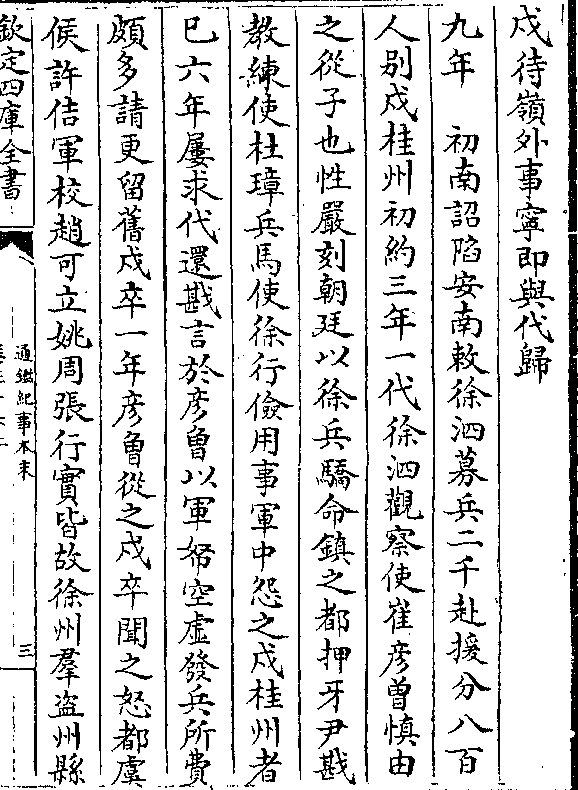 戍待嶺外事寧即與代歸
九年　初南詔陷安南敕徐泗募兵二千赴援分八百
人别戍桂州初約三年一代徐泗觀察使崔彦曽慎由
之從子也性嚴刻朝廷以徐兵驕命鎮之都押牙尹戡
教練使杜璋兵馬使徐行儉用事軍中怨之戍桂州者
已六年屢求代還戡言於彦曽以軍帑空虚發兵所費
頗多請更留舊戍卒一年彦曽從之戍卒聞之怒都虞
候許佶軍校趙可立姚周張行實皆故徐州羣盗州縣
欽定四庫全書
通鑑紀事本末
三